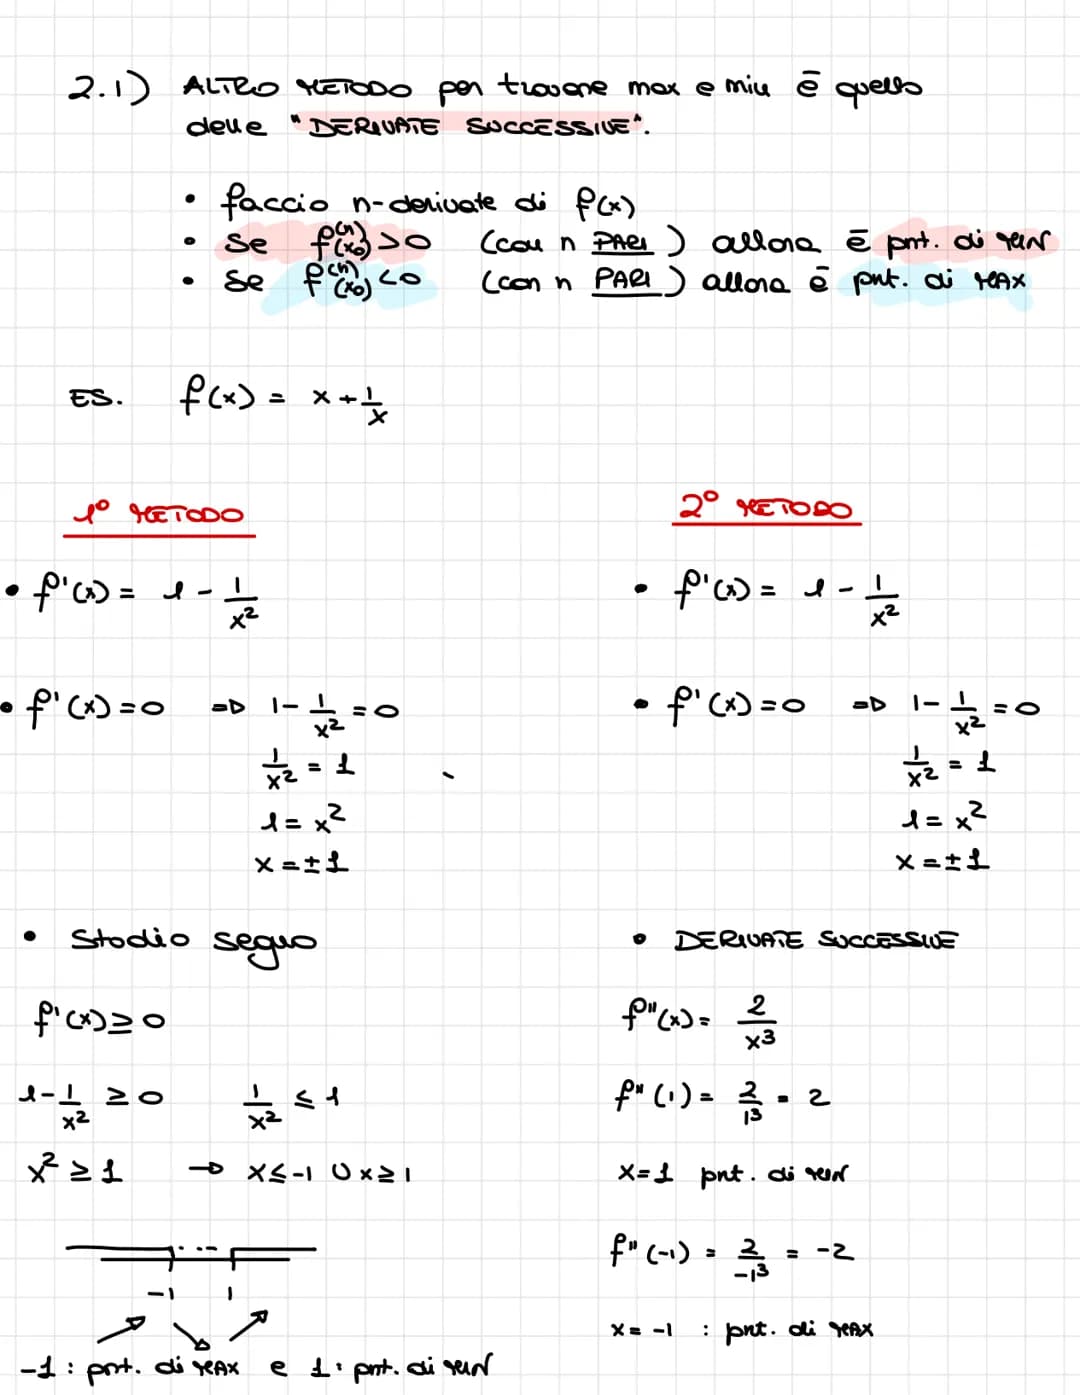 2.1) ALTRO METODO per trovare max e min ē quello
delle "DERIVATE SUCCESSIVE".
• faccio n-derivate di f(x)
• se f⁽ⁿ⁾(x₀) > 0 (con n PARI) allora ē pnt. di MIN
• se f⁽ⁿ⁾(x₀) < 0 (con n PARI) allora ē pnt. di MAX
ES. f(x) = x + 1/x
1° METODO
• f'(x) = 1 - 1/x²
• f'(x) = 0 => 1 - 1/x² = 0
1/x² = 1
1 = x²
x = ±1
• Studio segno
f'(x) ≥ 0
1 - 1/x² ≥ 0 1/x² ≤ 1
x² ≥ 1 → x ≤ -1 U x ≥ 1
-1 1
-1 : pnt. di MAX e 1 : pnt. di MIN
2° METODO
• f'(x) = 1 - 1/x²
• f'(x) = 0 => 1 - 1/x² = 0
1/x² = 1
1 = x²
x = ±1
• DERIVATE SUCCESSIVE
f"(x) = 2/x³
f"(1) = 2/1³ = 2
x = 1 pnt. di MIN
f"(-1) = 2/-1³ = -2
x = -1 : pnt. di MAX